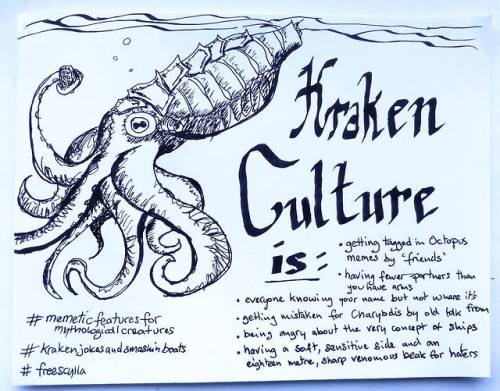 Kraken
Culture
is:
• getting tagged in Octopus
memes by 'friends'
• having fewer partners than
you have arms
• everyone knowing your name but not where it's from
• getting mistaken for Charybdis by old folk
• being angry about the very concept of ships
• having a soft, sensitive side and an
eighteen metre, sharp venomous beak for haters
# memeticfeatures for
mythological creatures
# Krakenjokesandsmashinboats
# freescylla